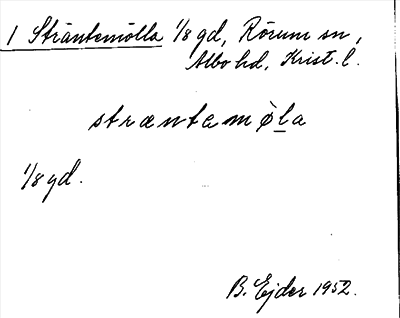 1 Sträntemölla 1/8 gd, Rörum sn,
Albo hd, Krist. l.
stræntamø̀l̲a
1/8 gd.
B. Ejder 1952.